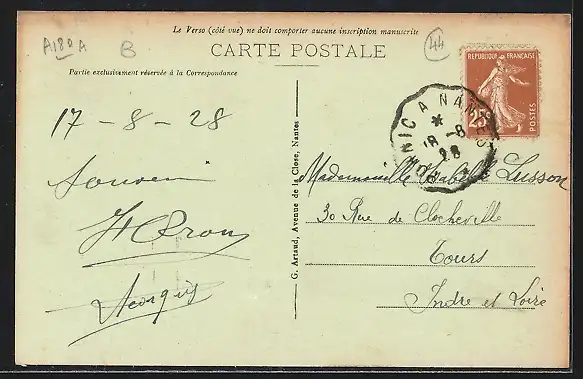 Le Verso (côté vue) ne doit comporter aucune inscription manuscrite
A180A
B
44
CARTE POSTALE
Partie exclusivement réservée à la Correspondance
REPUBLIQUE FRANÇAISE
POSTES
25
NIC A NANTES
18 - 8
28
17 - 8 - 28
G. Artaud, Avenue de la Close, Nantes
Mademoiselle Lusson
30 Rue de Clocheville
Tours
Indre et Loire